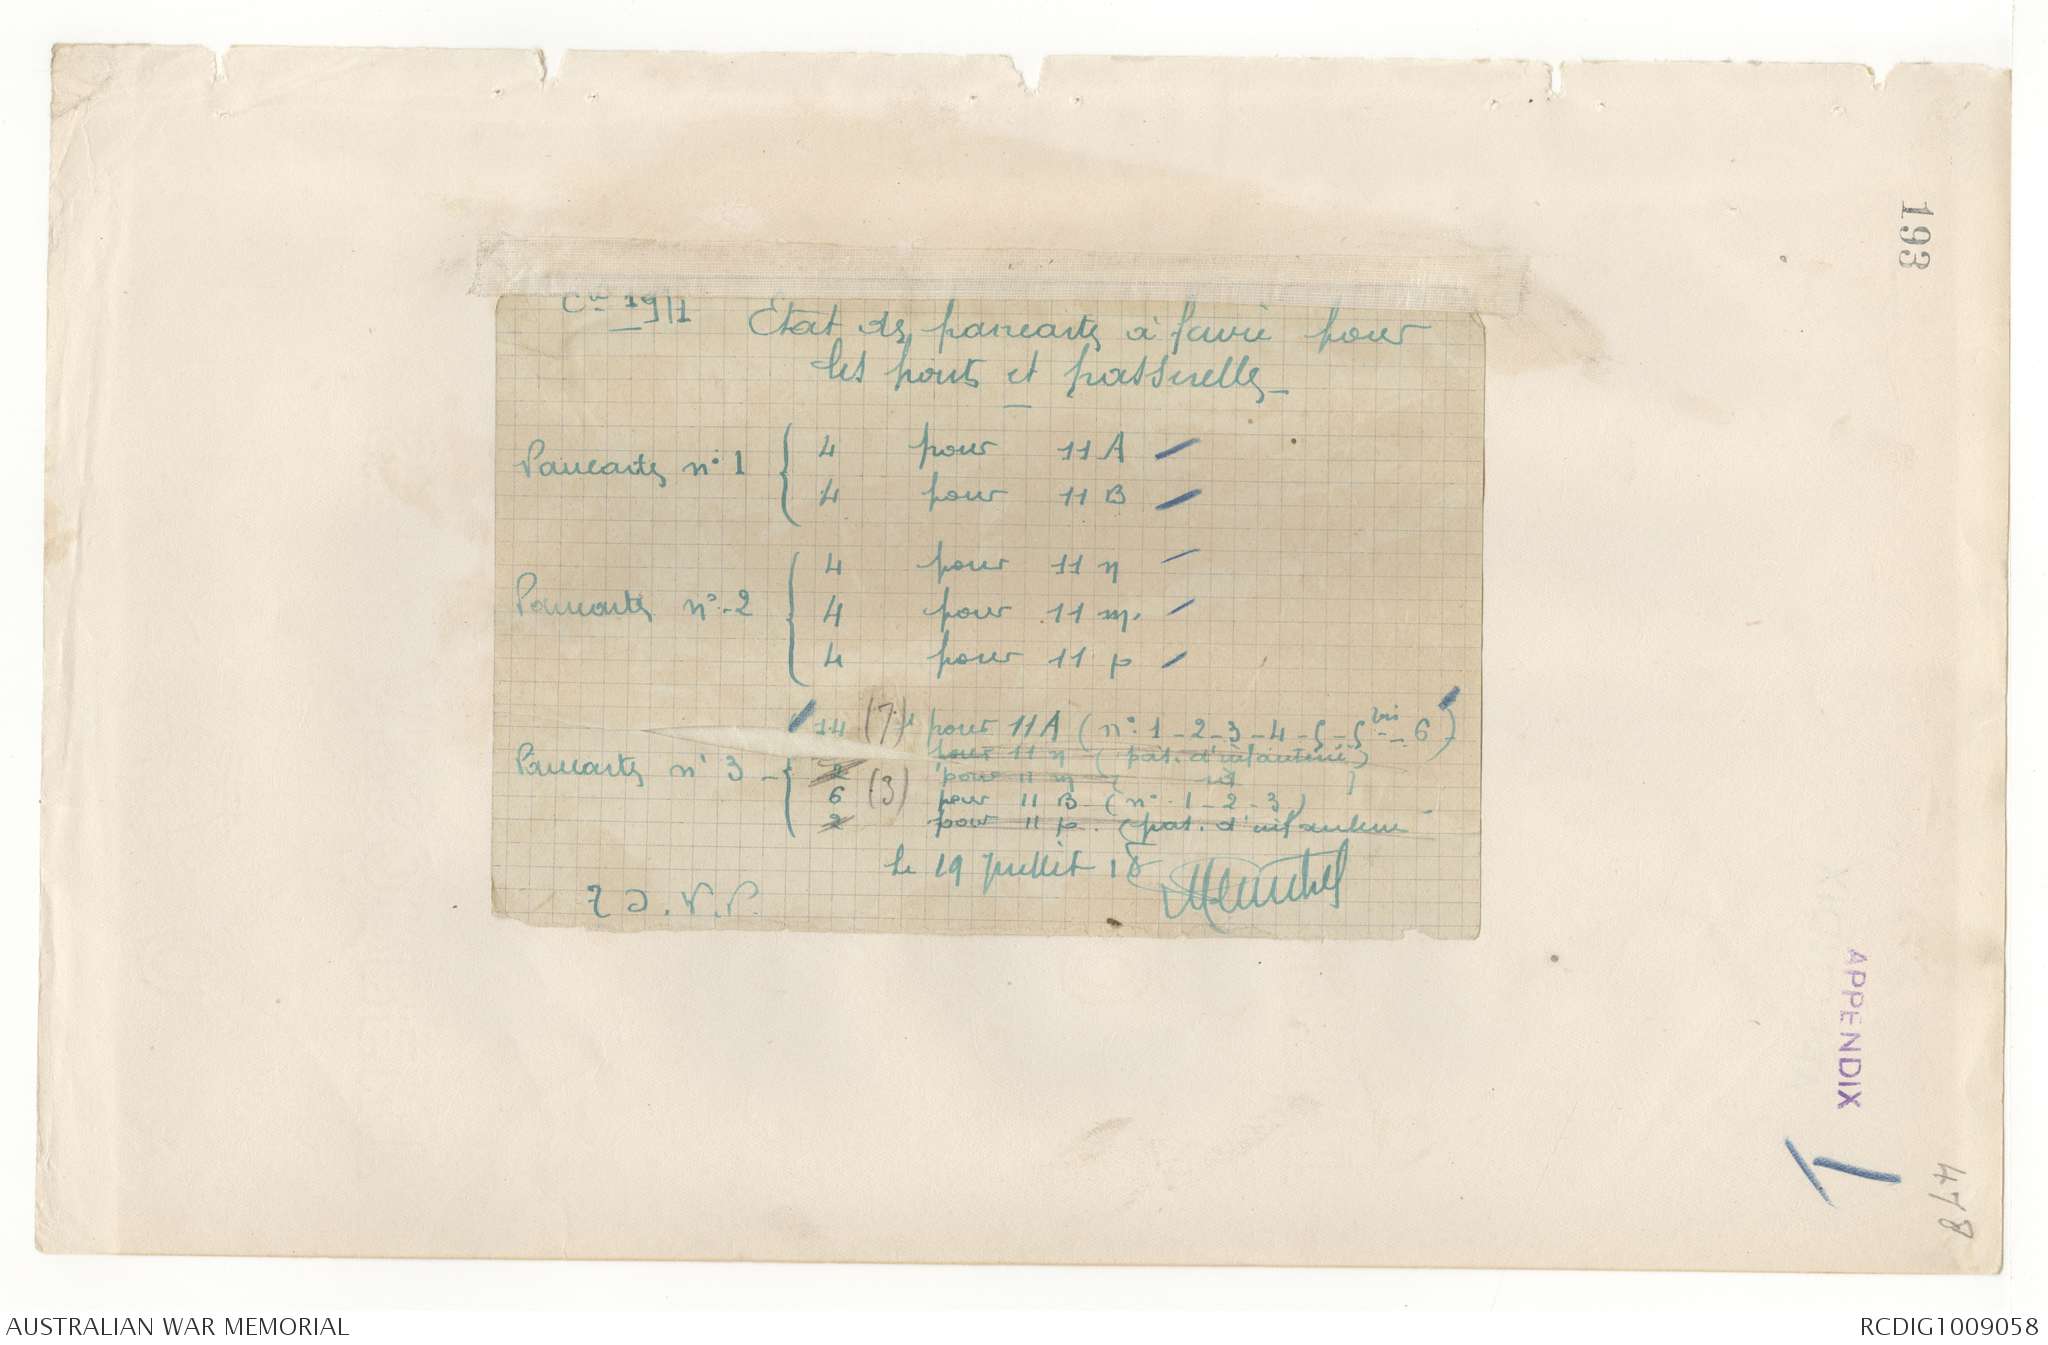 193
Cie 19/1 Etat des pancartes à faire pour
les ponts et passerelles
Pancartes n° 1 { 4 pour 11 A
4 pour 11 B
Pancartes n° 2 { 4 pour 11 n
4 pour 11 m
4 pour 11 p
14 (7) pour 11 A (n° 1 - 2 - 3 - 4 - 5 - 5 bis - 6)
pour 11 n (pas. d'infanterie)
Pancartes n° 3 { 2 pour 11 m
6 (3) pour 11 B (n° 1 - 2 - 3)
2 pour 11 p. (pas. d'infanterie
le 19 Juillet 18
APPENDIX
478
AUSTRALIAN WAR MEMORIAL
RCDIG1009058